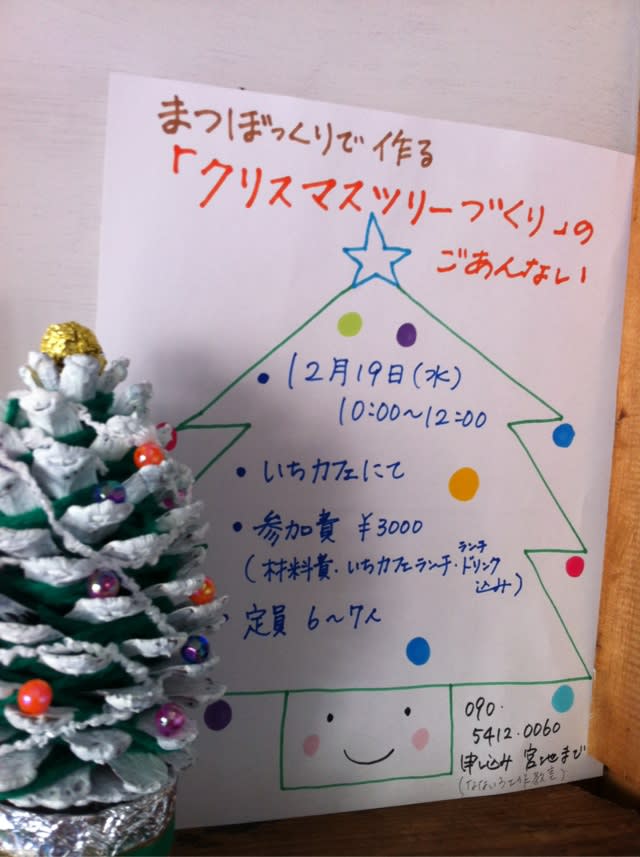 まつぼっくりで作る
「クリスマスツリーづくり」の
ごあんない
・12月19日(水)
10:00〜12:00
・いちカフェにて
・参加費 ¥3000
(材料費・いちカフェランチ・ドリンク
ランチ
込み)
・定員 6〜7人
090.
5412.0060
申し込み 宮地まで